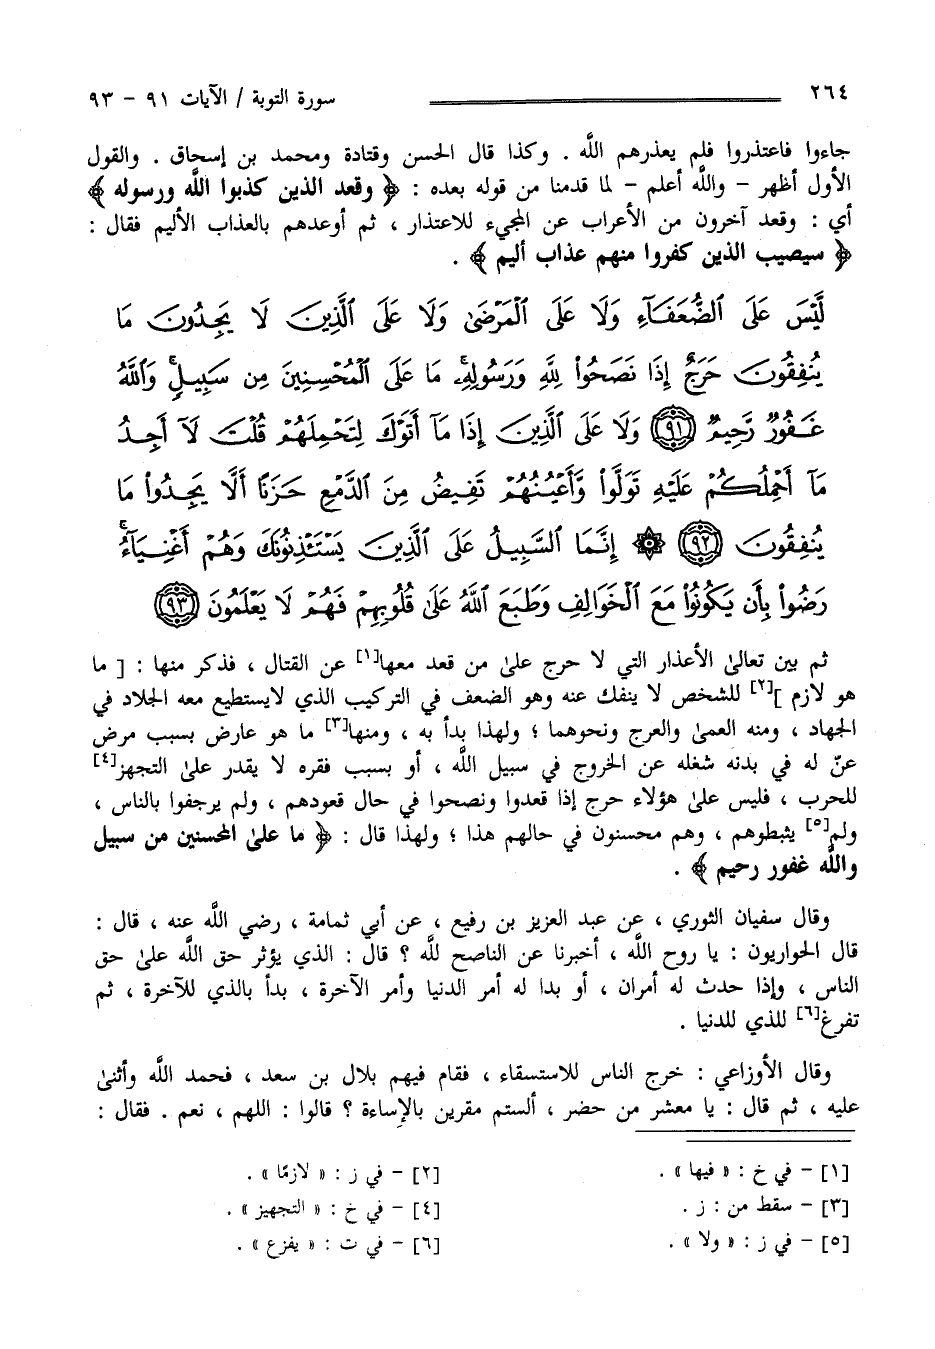 ٢٦٤ سورة التوبة / الآيات ٩١ - ٩٣
جاءوا فاعتذروا فلم يعذرهم اللَّه . وكذا قال الحسن وقتادة ومحمد بن إسحاق . والقول
الأول أظهر - واللَّه أعلم - لما قدمنا من قوله بعده : ﴿ وقعد الذين كذبوا اللَّه ورسوله ﴾
أي : وقعد آخرون من الأعراب عن المجيء للاعتذار ، ثم أوعدهم بالعذاب الأليم فقال :
﴿ سيصيب الذين كفروا منهم عذاب أليم ﴾ .
لَّيْسَ عَلَى ٱلضُّعَفَآءِ وَلَا عَلَى ٱلْمَرْضَىٰ وَلَا عَلَى ٱلَّذِينَ لَا يَجِدُونَ مَا
يُنفِقُونَ حَرَجٌ إِذَا نَصَحُوا۟ لِلَّهِ وَرَسُولِهِۦ مَا عَلَى ٱلْمُحْسِنِينَ مِن سَبِيلٍ وَٱللَّهُ
غَفُورٌ رَّحِيمٌ ﴿٩١﴾ وَلَا عَلَى ٱلَّذِينَ إِذَا مَآ أَتَوْكَ لِتَحْمِلَهُمْ قُلْتَ لَآ أَجِدُ
مَآ أَحْمِلُكُمْ عَلَيْهِ تَوَلَّوا۟ وَّأَعْيُنُهُمْ تَفِيضُ مِنَ ٱلدَّمْعِ حَزَنًا أَلَّا يَجِدُوا۟ مَا
يُنفِقُونَ ﴿٩٢﴾ ۞ إِنَّمَا ٱلسَّبِيلُ عَلَى ٱلَّذِينَ يَسْتَـْٔذِنُونَكَ وَهُمْ أَغْنِيَآءُ ۚ
رَضُوا۟ بِأَن يَكُونُوا۟ مَعَ ٱلْخَوَالِفِ وَطَبَعَ ٱللَّهُ عَلَىٰ قُلُوبِهِمْ فَهُمْ لَا يَعْلَمُونَ ﴿٩٣﴾
ثم بين تعالىٰ الأعذار التي لا حرج علىٰ من قعد معها[١] عن القتال ، فذكر منها : [ ما
هو لازم ][٢] للشخص لا ينفك عنه وهو الضعف في التركيب الذي لايستطيع معه الجلاد في
الجهاد ، ومنه العمىٰ والعرج ونحوهما ؛ ولهذا بدأ به ، ومنها[٣] ما هو عارض بسبب مرض
عنّ له في بدنه شغله عن الخروج في سبيل اللَّه ، أو بسبب فقره لا يقدر علىٰ التجهز[٤]
للحرب ، فليس علىٰ هؤلاء حرج إذا قعدوا ونصحوا في حال قعودهم ، ولم يرجفوا بالناس ،
ولم[٥] يثبطوهم ، وهم محسنون في حالهم هذا ؛ ولهذا قال : ﴿ ما علىٰ المحسنين من سبيل
واللَّه غفور رحيم ﴾ .
وقال سفيان الثوري ، عن عبد العزيز بن رفيع ، عن أبي ثمامة ، رضي اللَّه عنه ، قال :
قال الحواريون : يا روح اللَّه ، أخبرنا عن الناصح للَّه ؟ قال : الذي يؤثر حق اللَّه علىٰ حق
الناس ، وإذا حدث له أمران ، أو بدا له أمر الدنيا وأمر الآخرة ، بدأ بالذي للآخرة ، ثم
تفرغ[٦] للذي للدنيا .
وقال الأوزاعي : خرج الناس للاستسقاء ، فقام فيهم بلال بن سعد ، فحمد اللَّه وأثنىٰ
عليه ، ثم قال : يا معشر من حضر ، ألستم مقرين بالإساءة ؟ قالوا : اللهم ، نعم . فقال :
[١] - في خ : « فيها » . [٢] - في ز : « لازمًا » .
[٣] - سقط من : ز . [٤] - في خ : « التجهيز » .
[٥] - في ز : « ولا » . [٦] - في ت : « يفزع » .